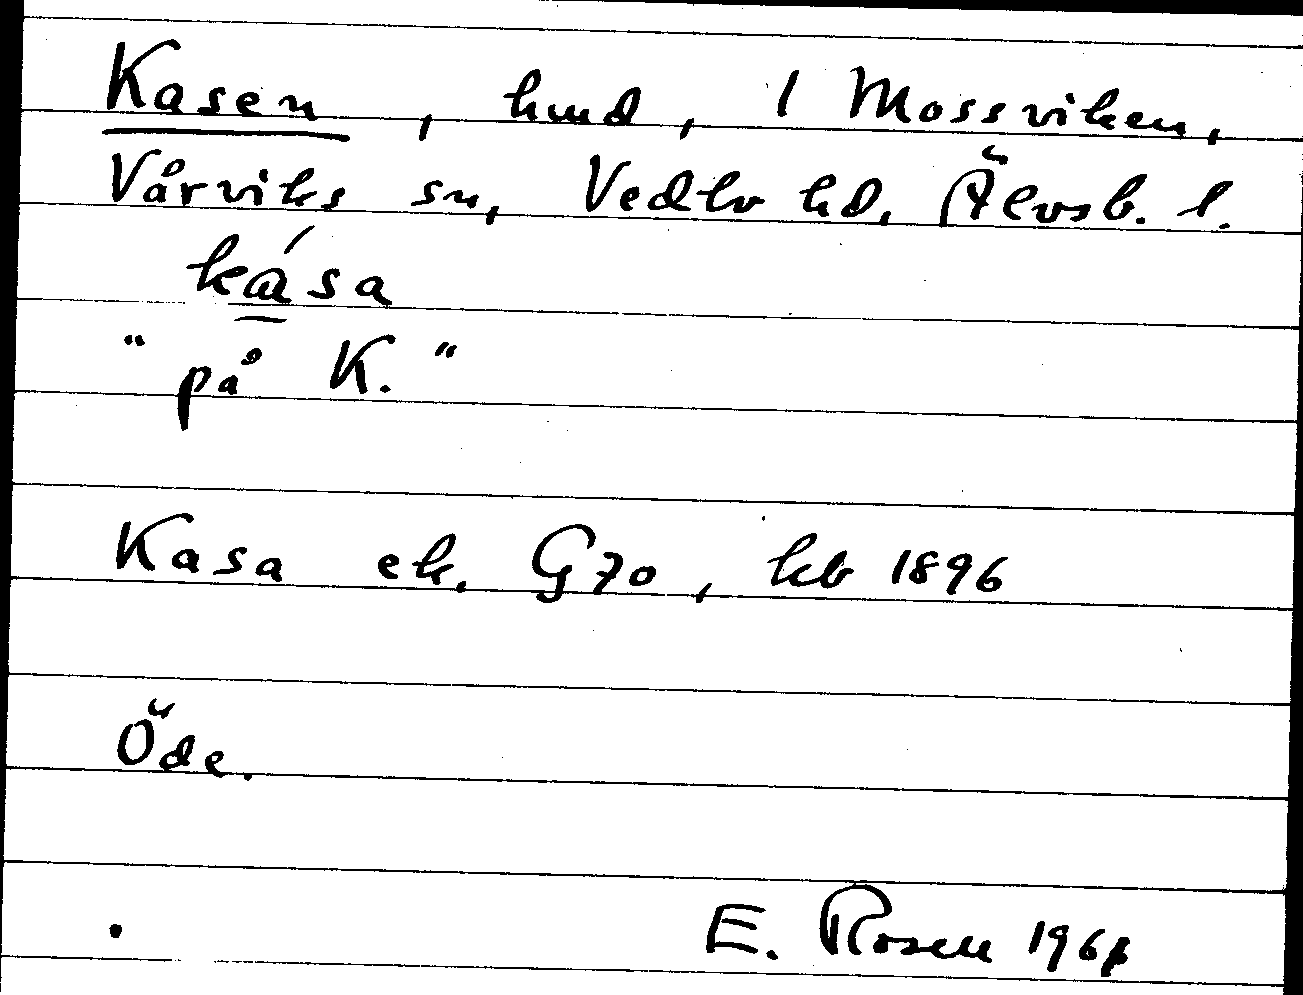 Kasen, hmd, 1 Mossviken,
Vårviks sn, Vedbo hd, Älvsb. l.
ká̱sa
" på K. "
Kasa ek. G70, kb 1896
Öde.
E. Rosen